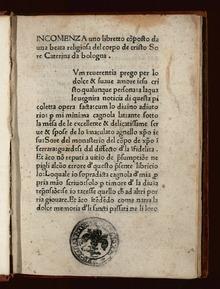 INCOMENZA uno libretto cōposto da
una beata religiosa del corpo de cristo So
re Caterina da bologna.
Vm reuerentia prego per lo
dolce & suaue amore iesu cri
sto qualunque persona la qua
le uegnira noticia di questa pi
coletta opera facta cum lo diuino adiuto
rio p mi minima cagnola latrante sotto
la mesa de le excellente & delicatissime ser
ue & spose de lo imaculato agnello xp̄o ie
su: Sore del monasterio del cōpo de xp̄o i
ferrara: guardesi dal diffecto d la ifidelita.
Et āco nō reputi a uitio de psumptiōe ne
pigli alcūo errore d questo psente libricio
lo: Loquale io sopradicta cagnola d mia p
pria māo scriuo solo p timore d la diuīa
repsiōe se io tacesse quello ch ad altri po
ria giouare. Et āco
dolce memoria d li sancti passati me li loro